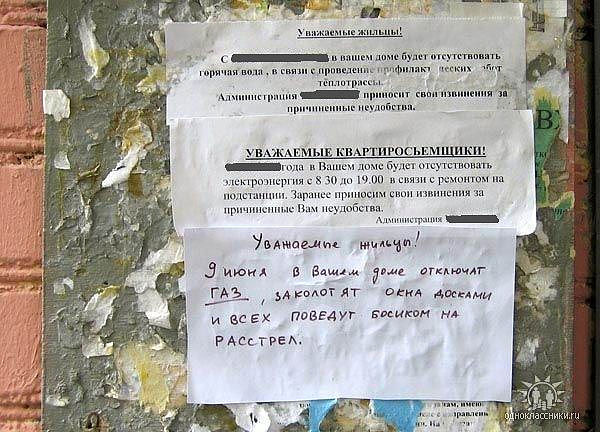 Уважаемые жильцы!
С в вашем доме будет отсутствовать
горячая вода , в связи с проведение профилакт ческих абот
теплотрассы.
Администрация приносит свои извинения за
причиненные неудобства.
УВАЖАЕМЫЕ КВАРТИРОСЬЕМЩИКИ!
года в Вашем доме будет отсутствовать
электроэнергия с 8 30 до 19.00 в связи с ремонтом на
подстанции. Заранее приносим свои извинения за
причиненные Вам неудобства.
Администрация
Уважаемые жильцы!
9 июня в Вашем доме отключат
ГАЗ , заколотят окна досками
и всех поведут босиком на
РАССТРЕЛ.
одноклассники.ru